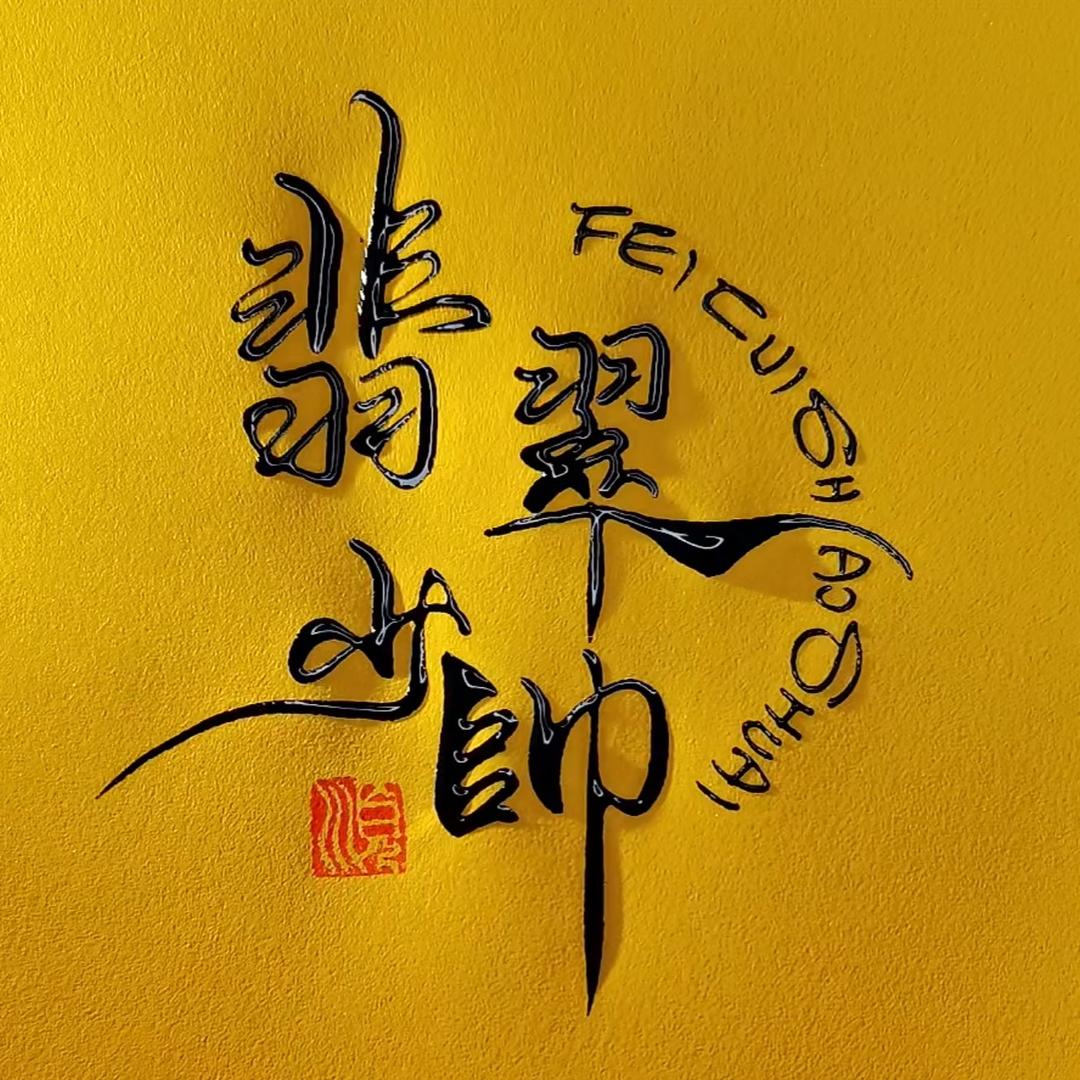 翡翠
少帥
FEI CUI SHAO SHUAI